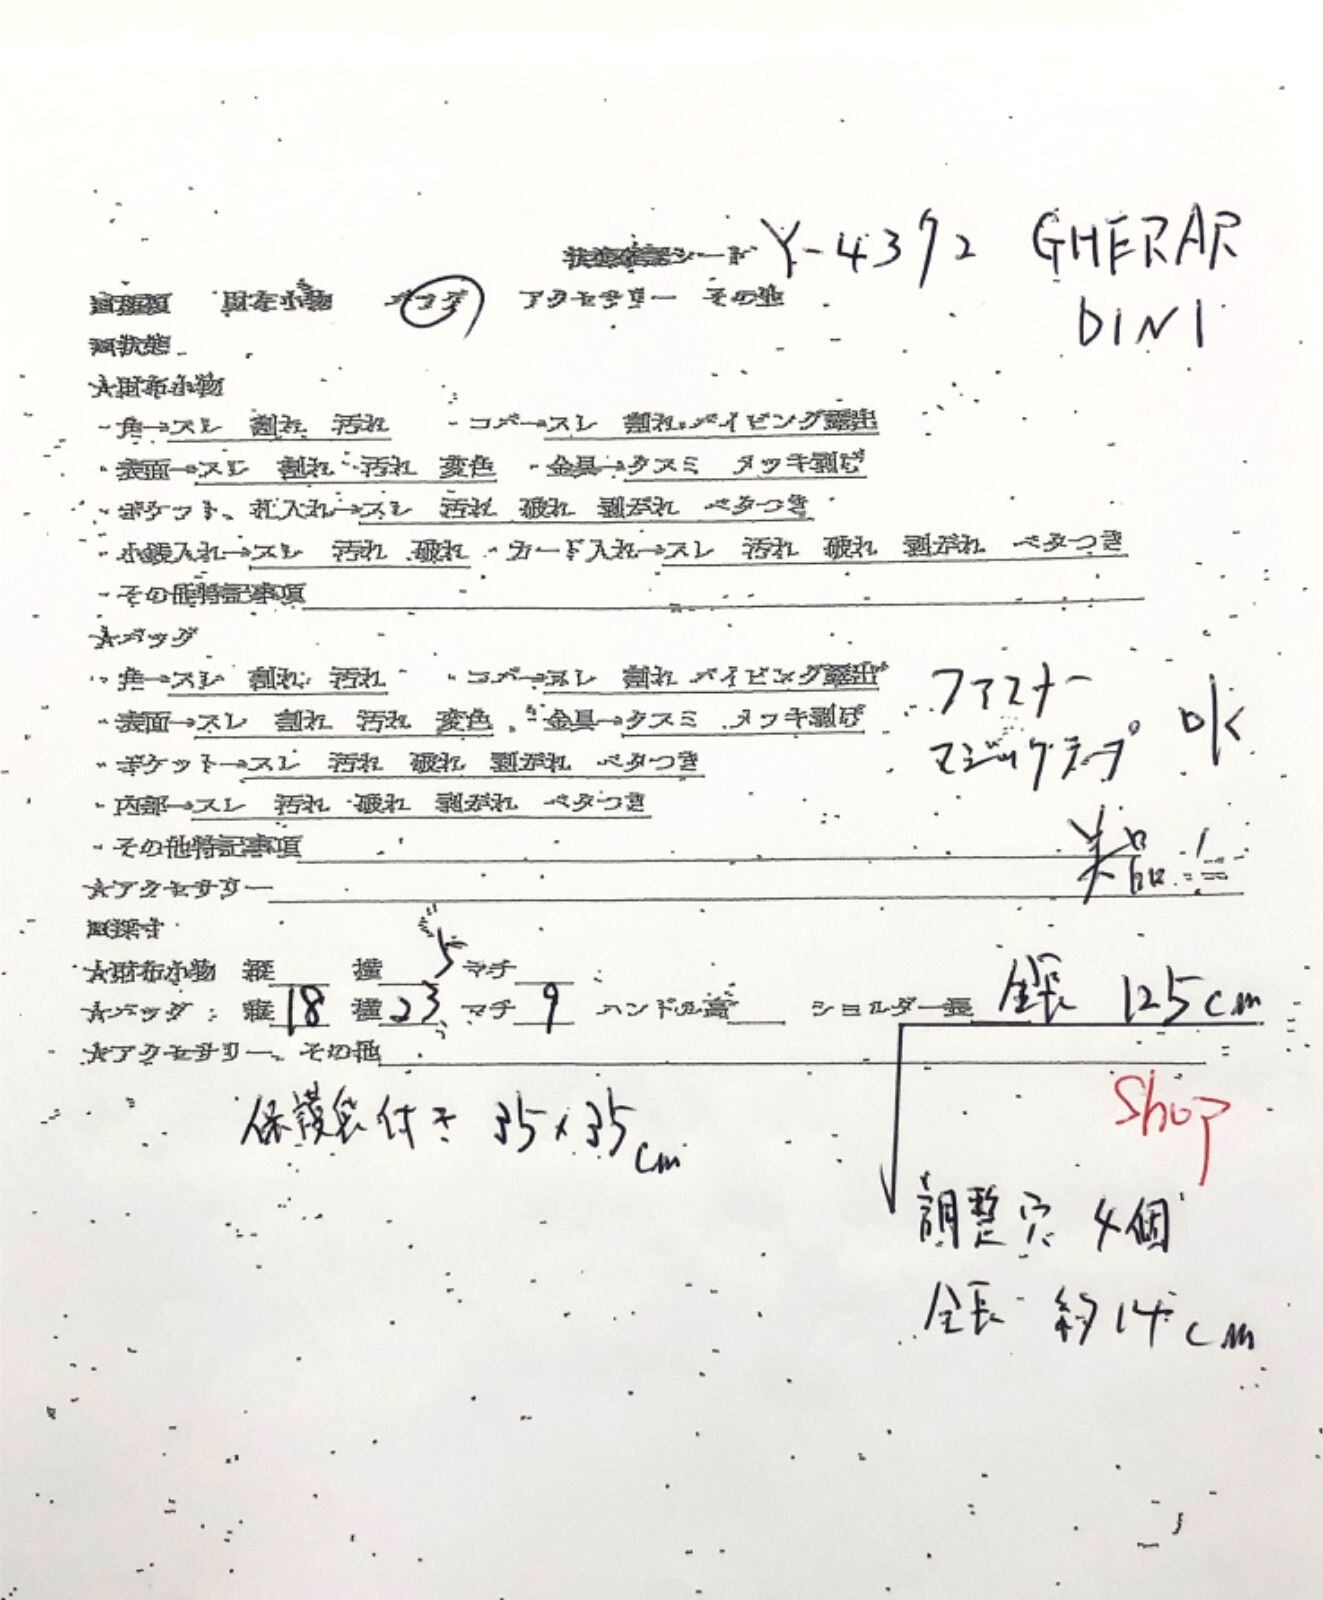 状態確認シート Y-4392 GHERAR
DINI
□種類 財布小物 バッグ アクセサリー その他
□状態
☆財布小物
・角→スレ 割れ 汚れ ・コバ→スレ 割れ パイピング露出
・表面→スレ 割れ 汚れ 変色 ・金具→クスミ メッキ剥げ
・ポケット、札入れ→スレ 汚れ 破れ 剥がれ ベタつき
・小銭入れ→スレ 汚れ 破れ ・カード入れ→スレ 汚れ 破れ 剥がれ ベタつき
・その他特記事項
☆バッグ
・角→スレ 割れ 汚れ ・コバ→スレ 割れ パイピング露出
・表面→スレ 割れ 汚れ 変色 ・金具→クスミ メッキ剥げ
・ポケット→スレ 汚れ 破れ 剥がれ ベタつき
・内部→スレ 汚れ 破れ 剥がれ ベタつき
ファスナー
マジックテープ OK
・その他特記事項 美品
☆アクセサリー
□採寸
☆財布小物 縦 横 マチ
☆バッグ 縦18 横23.5 マチ9 ハンドル高 ショルダー長 全長 125cm
☆アクセサリー、その他
保護袋付き 35×35cm
Shop
調整穴 4個
全長 約14cm